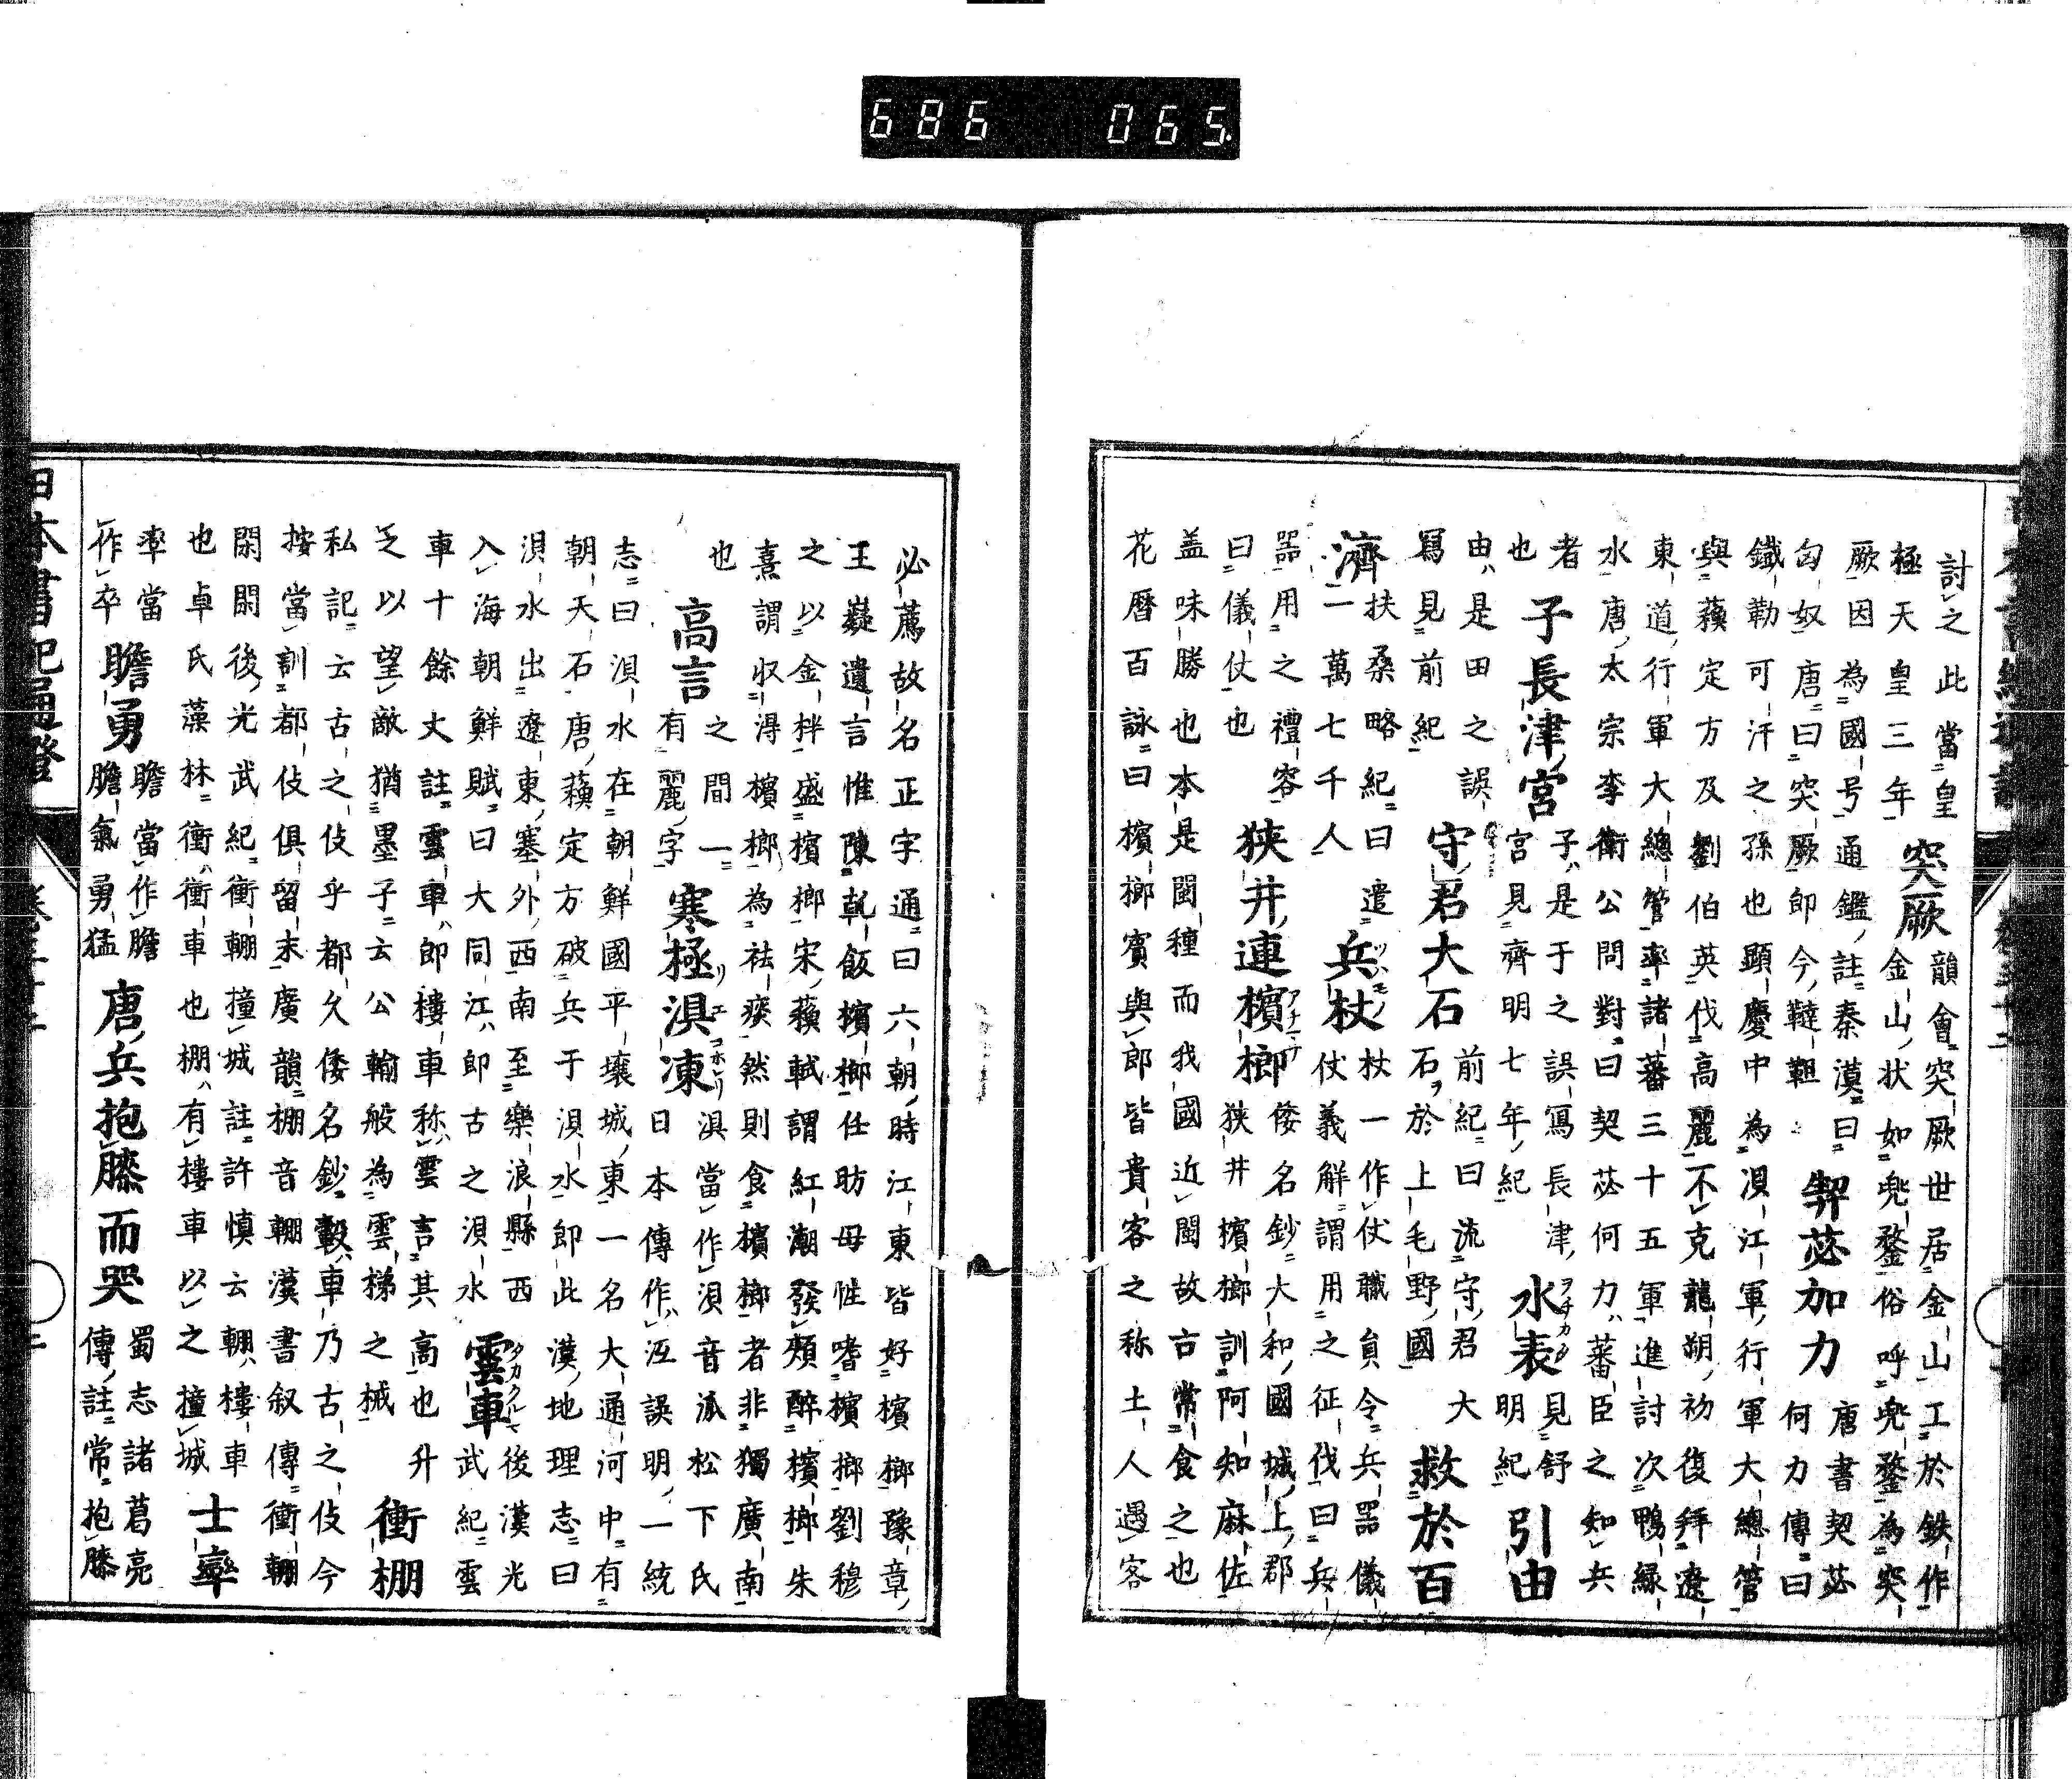 686 065
討之此當皇
極天皇三年
突厥
韻會突厥世居金山工於鉄作
金山状如兜鍪俗呼兜鍪為突
厥因為國号通鑑註秦漢曰
匈奴唐曰突厥即今韃靼
契苾加力
唐書契苾
何力傳曰
鐵勒可汗之孫也顕慶中為浿江軍行軍大總管
與蘓定方及劉伯英伐高麗不克龍朔初復拜遼
東道行軍大總管率諸蕃三十五軍進討次鴨緑
水唐太宗李衛公問對曰契苾何力蕃臣之知兵
者
也
子長津宮
子是于之誤寫長津
宮見齊明七年紀
水表
見舒
明紀
引由
由是田之誤
寫見前紀
守君大石
前紀曰流守君大
石於上毛野國
救於百
濟
扶桑略紀曰遣
一萬七千人
兵杖
杖一作仗職員令兵器儀
仗義解謂用之征伐曰兵
器用之禮容
曰儀仗也
狭井連檳榔
倭名鈔大和國城上郡
狭井檳榔訓阿知麻佐
盖味勝也本是閩種而我國近閩故古常食之也
花暦百詠曰檳榔賓與郎皆貴客之称土人過客
必薦故名正字通曰六朝時江東皆好檳榔豫章
王嶷遺言惟陳乾飯檳榔任昉母性嗜檳榔劉穆
之以金柈盛檳榔宋蘓軾謂紅潮發頬醉檳榔朱
熹謂収得檳榔為祛瘴然則食檳榔者非獨廣南
也
高言
之間一
有麗字
寒極浿凍
浿當作浿音派松下氏
日本傳作沍誤明一統
志曰浿水在朝鮮國平壤城東一名大通河中有
朝天石唐蘓定方破兵于浿水即此漢地理志曰
浿水出遼東塞外西南至樂浪縣西
入海朝鮮賦曰大同江即古之浿水
雲車
後漢光
武紀雲
車十餘丈註雲車即樓車称雲言其高也升
之以望敵猶墨子云公輸般為雲梯之械
衝棚
私記云古之伎乎都久倭名鈔轂車乃古之伎今
按當訓都伎俱留末廣韻棚音輣漢書叙傳衝輣
閑閑後光武紀衝輣撞城註許慎云輣樓車
也卓氏藻林衝衝車也棚有樓車以之撞城
士率
率當
作卒
瞻勇
瞻當作膽
膽氣勇猛
唐兵抱膝而哭
蜀志諸葛亮
傳註常抱膝
日本書紀通證